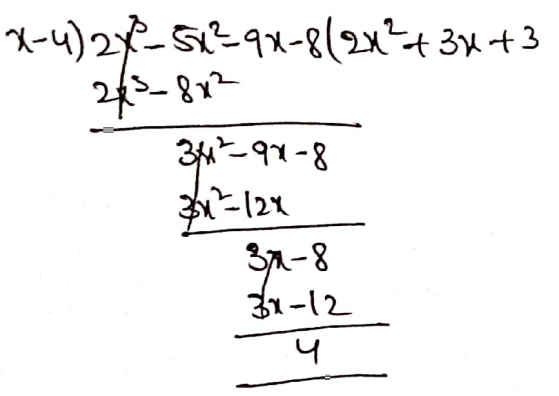 x-4) 2x³ - 5x² - 9x - 8 ( 2x² + 3x + 3
2x³ - 8x²
3x² - 9x - 8
3x² - 12x
3x - 8
3x - 12
4